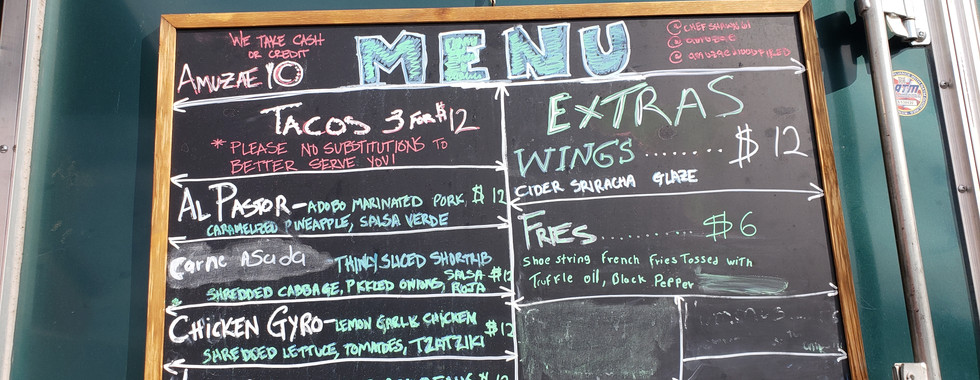 WE TAKE CASH
OR CREDIT
AMUZAE
MENU
TACOS 3 FOR $12
* PLEASE NO SUBSTITUTIONS TO
BETTER SERVE YOU!
AL PASTOR - ADOBO MARINATED PORK, $12
CARAMELIZED PINEAPPLE, SALSA VERDE
Carne ASada THINLY SLICED SHORTRIB
SHREDDED CABBAGE, PICKLED ONIONS, SALSA ROJA $12
CHICKEN GYRO - LEMON GARLIC CHICKEN $12
SHREDDED LETTUCE, TOMATOES, TZATZIKI
EXTRAS
WINGS ........ $12
CIDER SRIRACHA GLAZE
FRIES ............ $6
Shoe string French Fries Tossed with
Truffle oil, Black Pepper